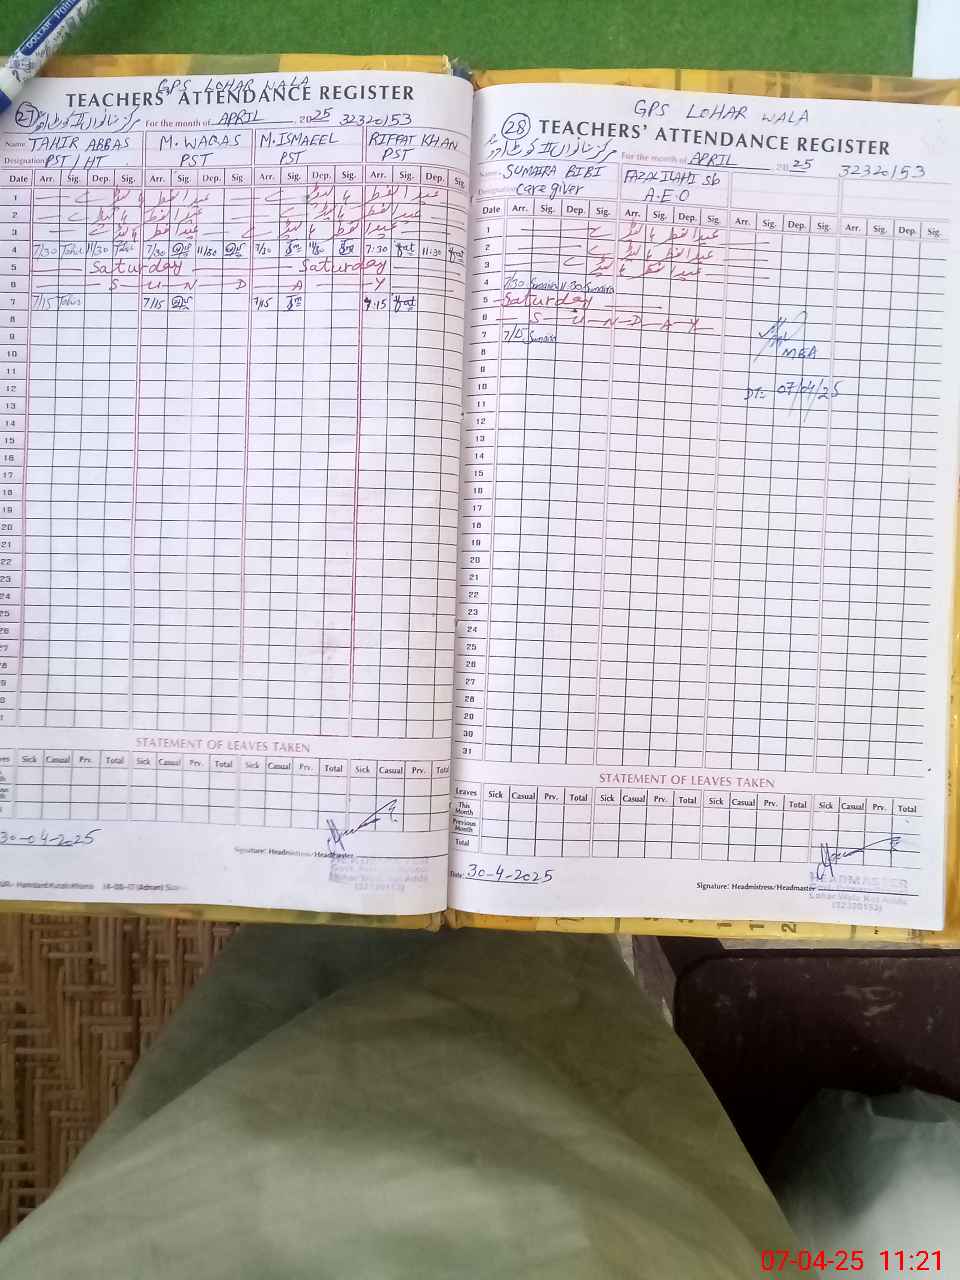 GPS LOHAR WALA
TEACHERS' ATTENDANCE REGISTER
27 For the month of APRIL 2025 32320153
Name TAHIR ABBAS M. WAQAS M. ISMAEEL RIFFAT KHAN
Designation PST / HT PST PST PST
Date Arr. Sig. Dep. Sig. Arr. Sig. Dep. Sig. Arr. Sig. Dep. Sig. Arr. Sig. Dep. Sig.
1 عید الفطر
2 عید الفطر
3 عید الفطر
4 7/30 11/30 7/30 11/30 7/30 11/30 7:30 11:30
5 Saturday Saturday
6 S U N D A Y
7 7/15 7/15 7/15 7:15
8
9
10
11
12
13
14
15
16
17
18
19
20
21
22
23
24
25
26
27
STATEMENT OF LEAVES TAKEN
Sick Casual Prv. Total Sick Casual Prv. Total Sick Casual Prv. Total Sick Casual Prv. Total
30-04-2025
Signature: Headmistress/Headmaster
GPS LOHAR WALA
28 TEACHERS' ATTENDANCE REGISTER
For the month of APRIL 2025 32320153
Name SUMAIRA BIBI FAZALILAHI Sb
Designation Care giver A.E.O
Date Arr. Sig. Dep. Sig. Arr. Sig. Dep. Sig. Arr. Sig. Dep. Sig. Arr. Sig. Dep. Sig.
1 عید الفطر
2 عید الفطر
3 عید الفطر
4 7/30 Sumaira 11:30 Sumaira
5 Saturday
6 S U N D A Y
7 7/15 Sumaira
8 MEA
9
10 DT= 07/04/25
11
12
13
14
15
16
17
18
19
20
21
22
23
24
25
26
27
28
29
30
31
STATEMENT OF LEAVES TAKEN
Leaves Sick Casual Prv. Total Sick Casual Prv. Total Sick Casual Prv. Total Sick Casual Prv. Total
This Month
Previous Month
Total
Date: 30-4-2025
Signature: Headmistress/Headmaster
HEADMASTER
Lohar Wala Kot Addu
(32320153)
07-04-25 11:21